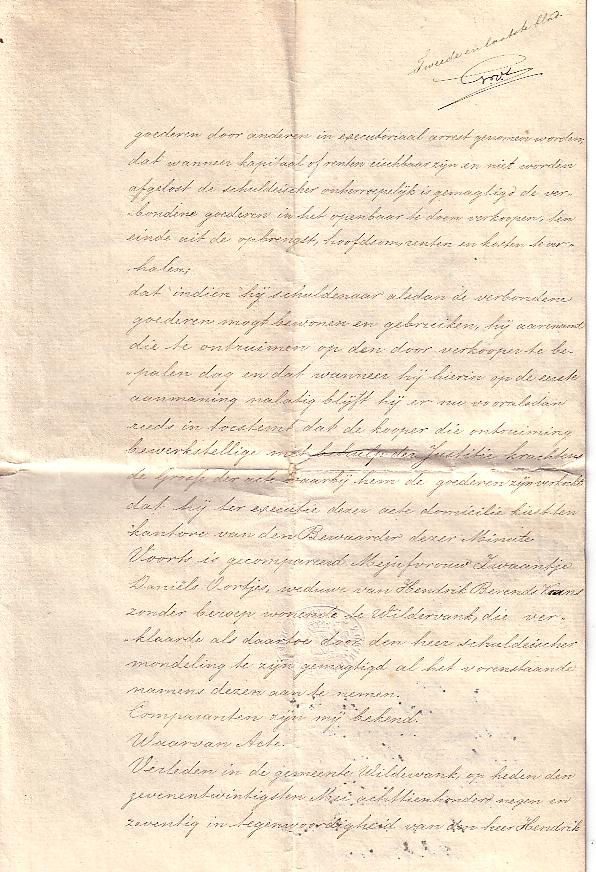 Tweede en laatste blad.
goederen door anderen in executoriaal arrest genomen worden;
dat wanneer kapitaal of renten eischbaar zijn en niet worden
afgelost de schuldeischer onherroepelijk is gemagtigd de ver-
-bondene goederen in het openbaar te doen verkoopen, ten
einde uit de opbrengst, hoofdsom, renten en kosten te ver-
-halen;
dat indien hij schuldenaar alsdan de verbondene
goederen mogt bewonen en gebruiken, hij aanneemt
die te ontruimen op den door verkooper te be-
-palen dag en dat wanneer hij hierin op de eerste
aanmaning nalatig blijft hij er nu vooralsdan
reeds in toestemt dat de kooper die ontruiming
bewerkstellige met behulp der Justitie krachtens
de Grosse der acte waarbij hem de goederen zijn verkocht
dat hij ter executie dezer acte domicilie kiest ten
kantore van den Bewaarder dezer Minute
Voorts is gecompareerd Mejufvrouw Zwaantje
Daniëls Oortjes, weduwe van Hendrik Berends
zonder beroep wonende te Wildervank, die ver-
-klaarde als daartoe door den heer schuldeischer
mondeling te zijn gemagtigd al het vorenstaande
namens dezen aan te nemen.
Comparanten zijn mij bekend.
Waarvan Acte.
Verleden in de gemeente Wildervank, op heden den
zevenentwintigsten Mei achttienhonderd negen en
zeventig in tegenwoordigheid van den heer Hendrik